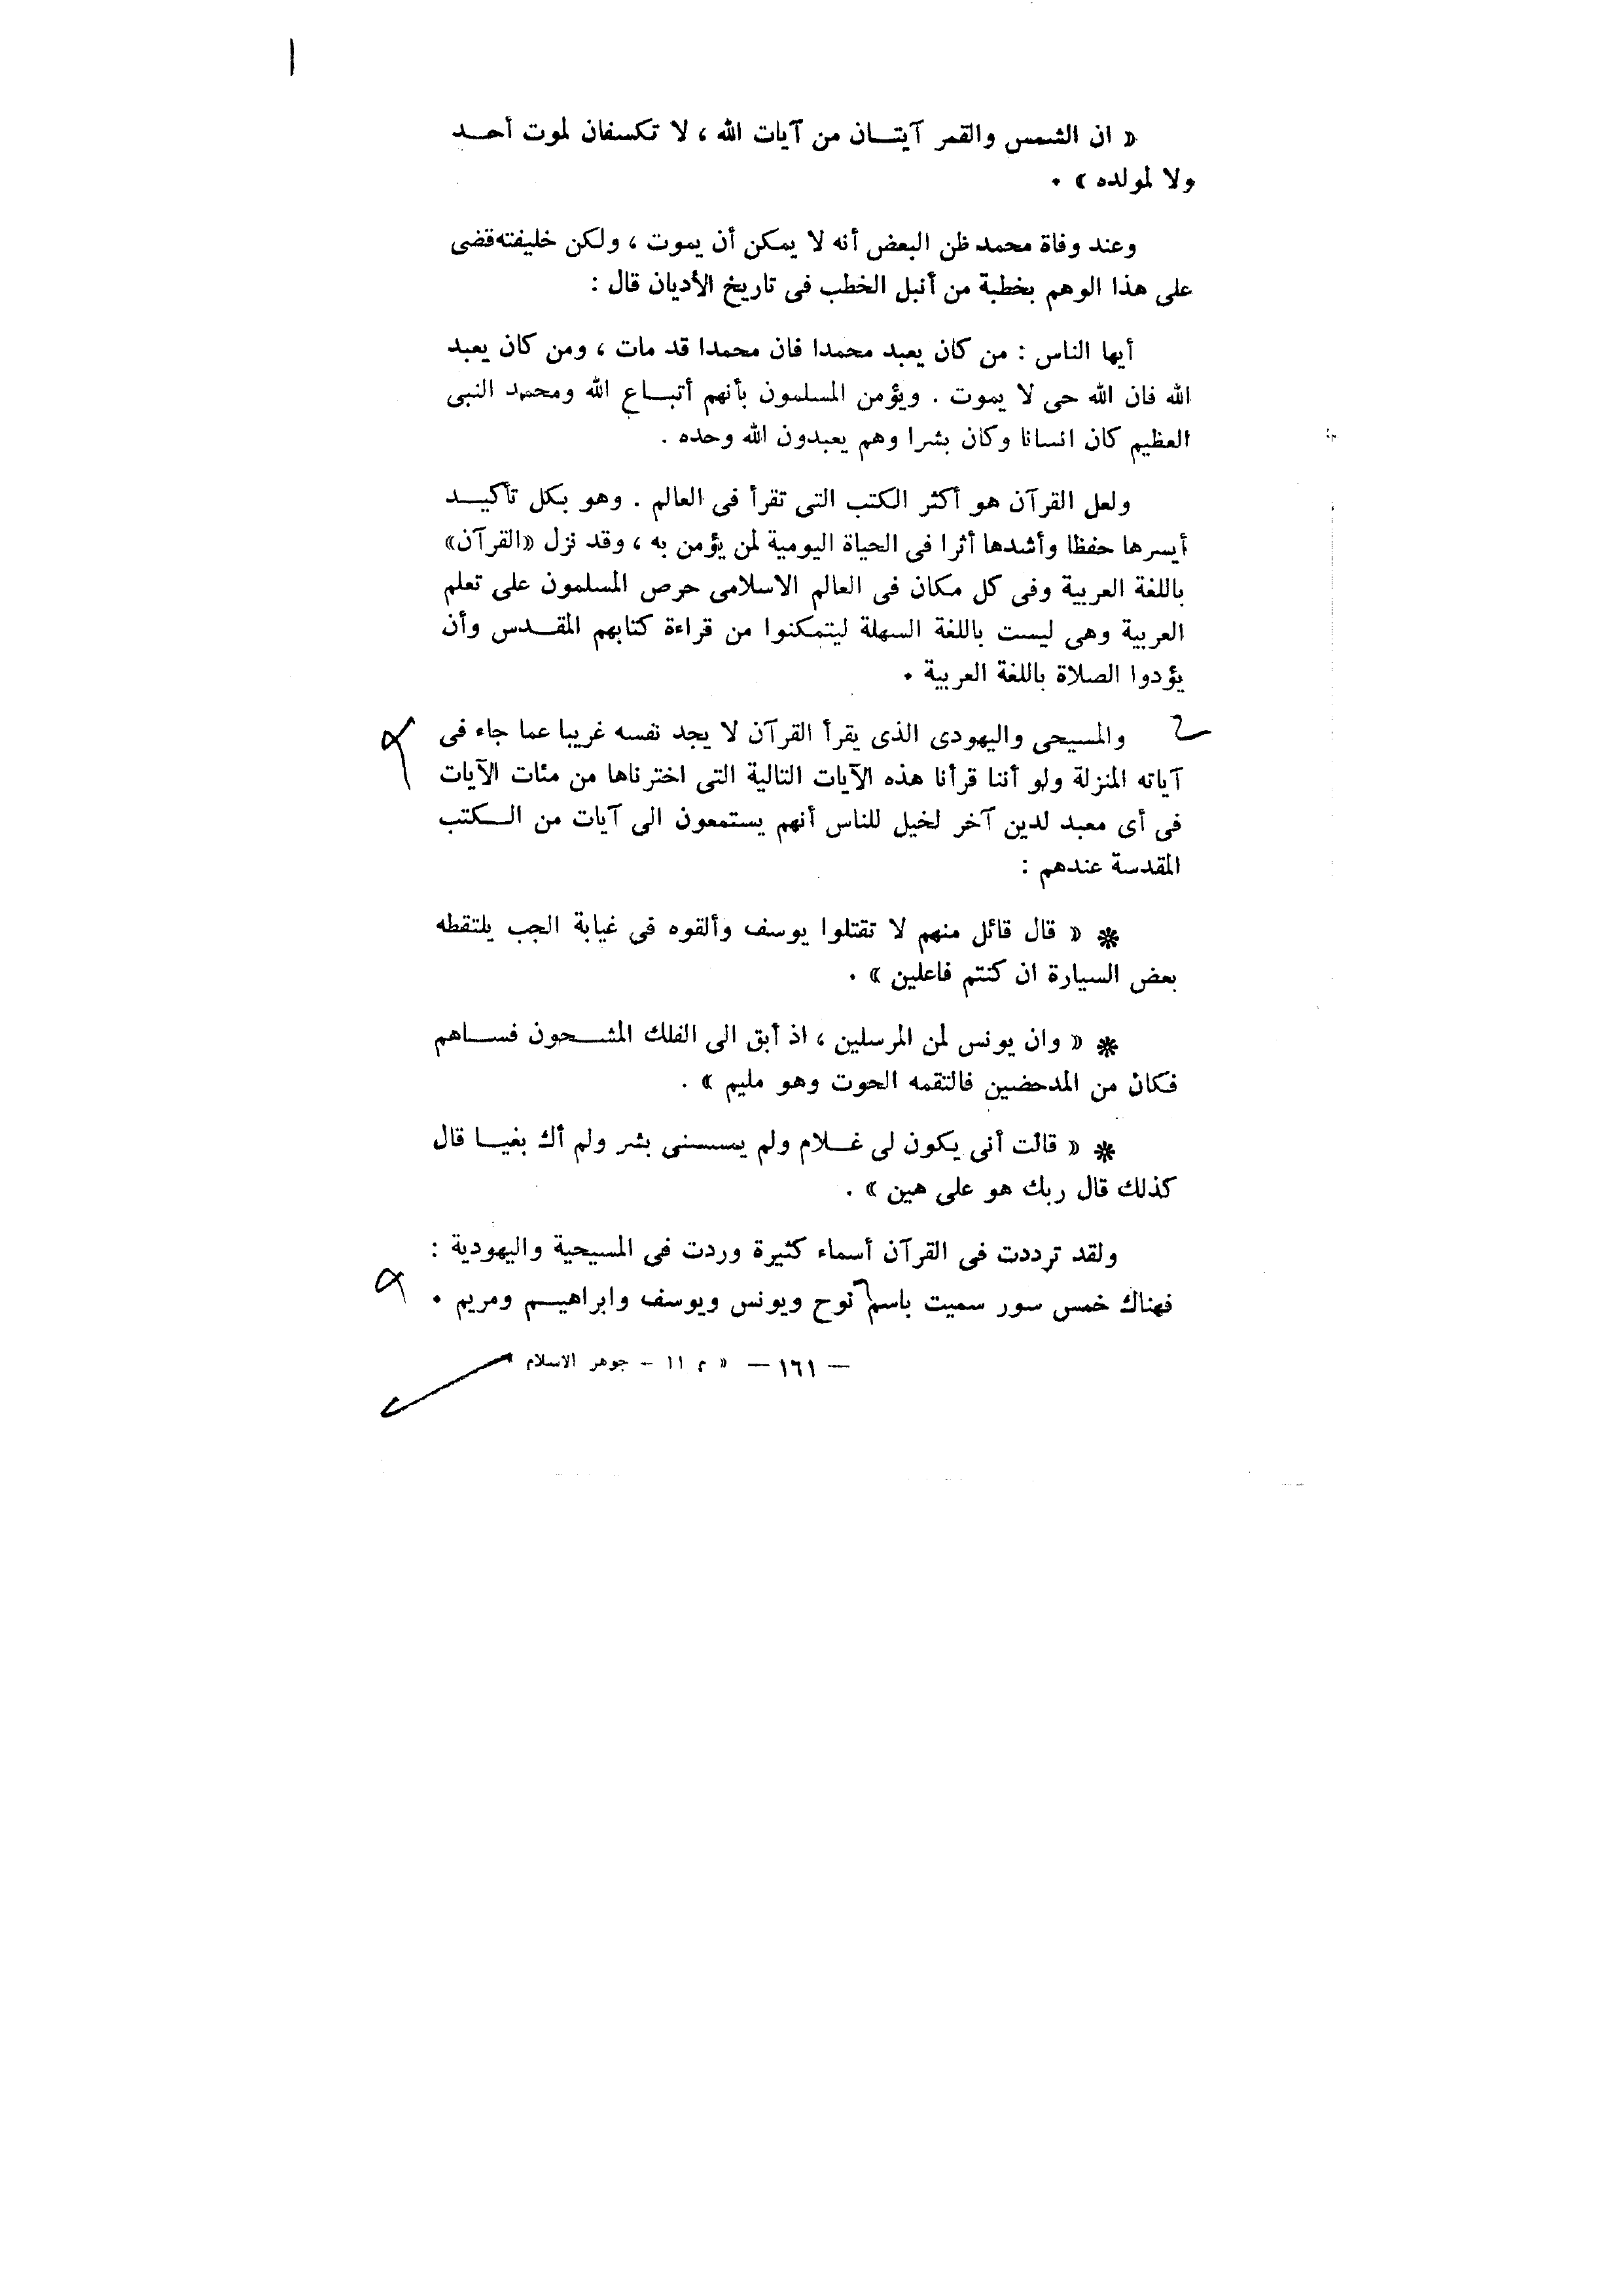 « ان الشمس والقمر آيتـــان من آيات الله ، لا تكسفان لموت أحـــد
ولا لمولده » .
وعند وفاة محمد ظن البعض أنه لا يمكن أن يموت ، ولكن خليفته قضى
على هذا الوهم بخطبة من أنبل الخطب فى تاريخ الأديان قال :
أيها الناس : من كان يعبد محمدا فان محمدا قد مات ، ومن كان يعبد
الله فان الله حى لا يموت . ويؤمن المسلمون بأنهم أتبـــاع الله ومحمد النبى
العظيم كان انسانا وكان بشرا وهم يعبدون الله وحده .
ولعل القرآن هو أكثر الكتب التى تقرأ فى العالم . وهو بكل تأكيـــد
أيسرها حفظا وأشدها أثرا فى الحياة اليومية لمن يؤمن به ، وقد نزل «القرآن»
باللغة العربية وفى كل مكان فى العالم الاسلامى حرص المسلمون على تعلم
العربية وهى ليست باللغة السهلة ليتمكنوا من قراءة كتابهم المقـــدس وأن
يؤدوا الصلاة باللغة العربية .
والمسيحى واليهودى الذى يقرأ القرآن لا يجد نفسه غريبا عما جاء فى
آياته المنزلة ولو أننا قرأنا هذه الآيات التالية التى اخترناها من مئات الآيات
فى أى معبد لدين آخر لخيل للناس أنهم يستمعون الى آيات من الـــكتب
المقدسة عندهم :
* « قال قائل منهم لا تقتلوا يوسف وألقوه فى غيابة الجب يلتقطه
بعض السيارة ان كنتم فاعلين » .
* « وان يونس لمن المرسلين ، اذ أبق الى الفلك المشـــحون فســـاهم
فكان من المدحضين فالتقمه الحوت وهو مليم » .
* « قالت أنى يكون لى غـــلام ولم يمسسنى بشر ولم أك بغيـــا قال
كذلك قال ربك هو على هين » .
ولقد ترددت فى القرآن أسماء كثيرة وردت فى المسيحية واليهودية :
فهناك خمس سور سميت باسم نوح ويونس ويوسف وابراهيـــم ومريم .
— ١٦١ — « م ١١ – جوهر الاسلام »